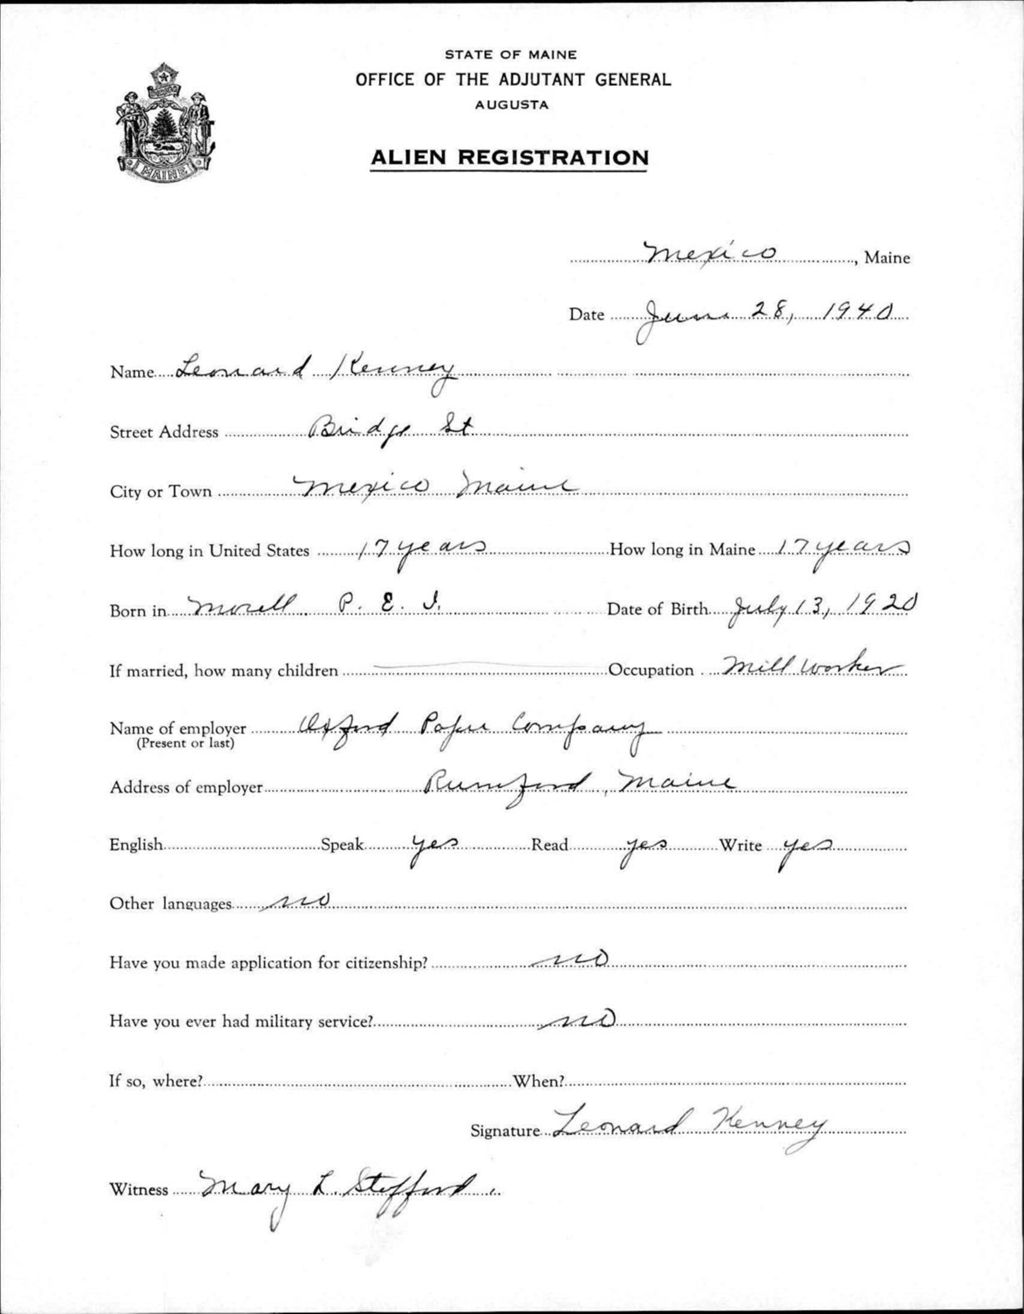 STATE OF MAINE
OFFICE OF THE ADJUTANT GENERAL
AUGUSTA
ALIEN REGISTRATION
MAINE
Mexico, Maine
Date June 28, 1940
Name Leonard Kenney
Street Address Bridge St
City or Town Mexico Maine
How long in United States 17 years How long in Maine 17 years
Born in Morell P. E. I. Date of Birth July 13, 1920
If married, how many children Occupation Mill worker
Name of employer Oxford Paper Company
(Present or last)
Address of employer Rumford, Maine
English Speak yes Read yes Write yes
Other languages no
Have you made application for citizenship? no
Have you ever had military service? no
If so, where? When?
Signature Leonard Kenney
Witness Mary L. Stofford.